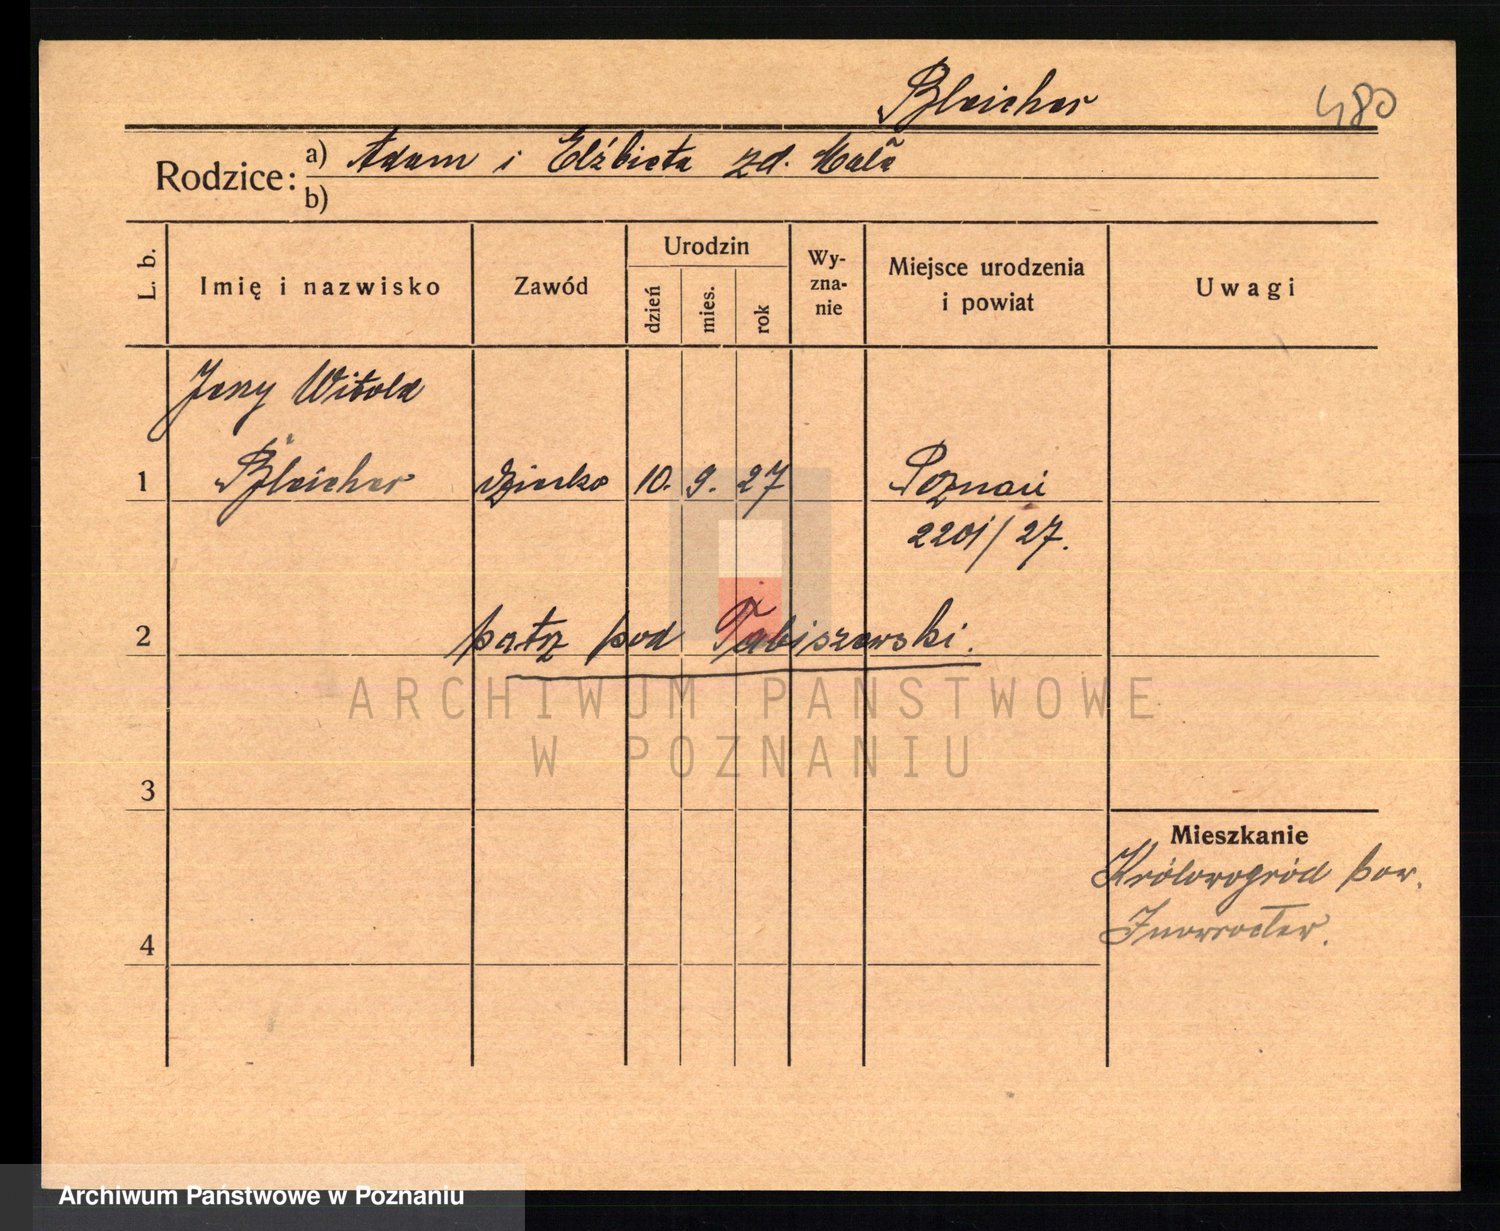 Bleicher 480
Rodzice: a) Adam i Elżbieta zd.
b)
L. b. Imię i nazwisko Zawód Urodzin dzień mies. rok Wy-zna-nie Miejsce urodzenia i powiat Uwagi
Jerzy Witold
1 Bleicher dziecko 10. 9. 27 Poznań
2201/27.
2 patrz pod Tabiszewski.
ARCHIWUM PAŃSTWOWE
W POZNANIU
3
Mieszkanie
Królowogród pow.
4 Inowrocław.
Archiwum Państwowe w Poznaniu